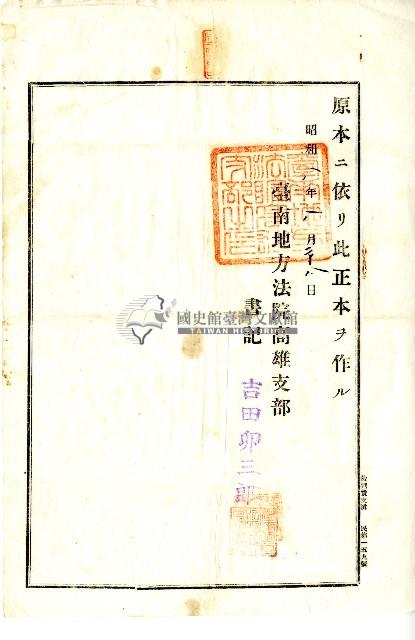 原本ニ依リ此正本ヲ作ル
昭和八年八月二十八日
臺南地方法院高雄支部
書記
吉田卯三郎
國史館臺灣文獻館
TAIWAN HISTORICA